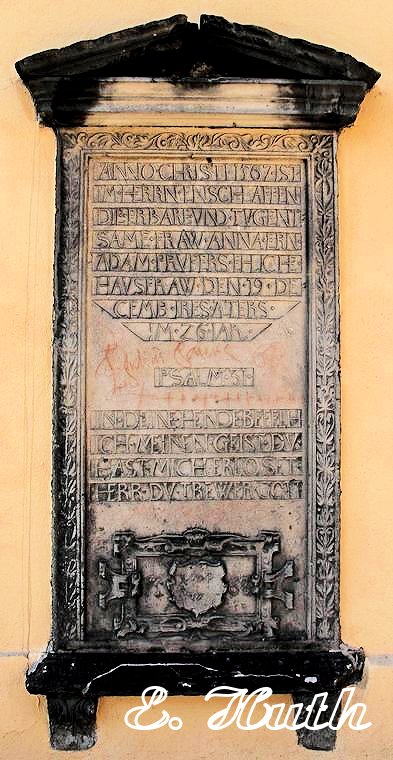 ANNO·CHRISTI·1567·IST
IM·HERRN·ENSCHLAFEN
DIE·ERBARE·VND·TUGENT
SAME·FRAW·ANNA·ERN
ADAM·PRVFERS·EHLICHE
HAVSFRAW·DEN·19·DE
CEMB·IRES·ALTERS·
IM·26·IAR·
PSALM·31·
IN·DEINE·HENDE·BEFELH
ICH·MEINEN·GEIST·DV
HAST·MICH·ERLOSET
HERR·DV·TREWER·GOT
E. Huth